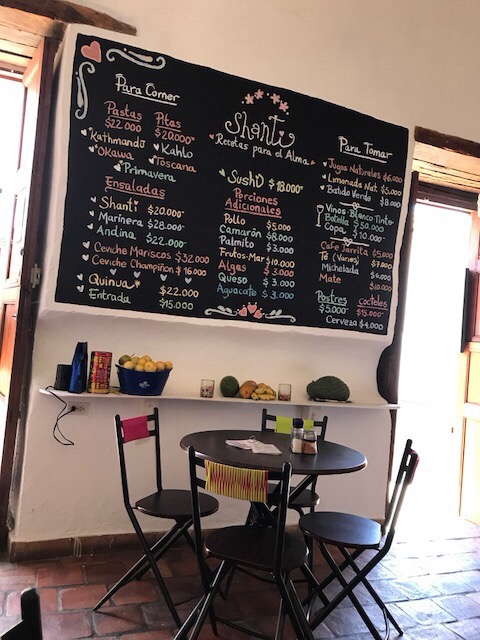 Para Comer
Pastas Pitas
$22.000 $20.000
Kathmandu Kahlo
Okawa Toscana
Primavera
Ensaladas
Shanti $20.000
Marinera $28.000
Andina $22.000
Ceviche Mariscos $32.000
Ceviche Champiñon $16.000
Quinua $22.000
Entrada $15.000
Shanti
Recetas para el Alma
SushD $18.000
Porciones
Adicionales
Pollo $5.000
Camarón $8.000
Palmito $3.000
Frutos-Mar $10.000
Algas $3.000
Queso $3.000
Aguacate $3.000
Para Tomar
Jugos Naturales $6.000
Limonada Nat $5.000
Batido Verde $8.000
Vinos-Blanco-Tinto
Botella $50.000
Copa $10.000
Cafe Jarrita $5.000
Té (Varios)
Michelada
Mate $10.000
Postres Cocteles
$5.000 $15.000
Cerveza $4.000